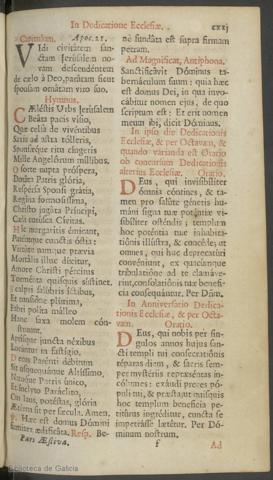 In Dedicatione Ecclesiæ.
cxxj
Capitulum. Apoc. 21.
VIdi civitatem sanctam
Jerusalem novam
descendéntem
de cælo à Deo, parátam sicut
sponsam ornátam viro suo.
Hymnus.
CÆléstis Urbs Jerúsalem
Beáta pacis visio,
Quæ celsa de vivéntibus
Saxis ad astra tólleris,
Sponsæque ritu cíngeris
Mille Angelórum míllibus.
O sorte nupta próspera,
Dotáta Patris glória,
Respérsa Sponsi grátia,
Regína formosíssima,
Christo jugáta Príncipi,
Cæli corúsca Cívitas.
Hic margarítis émicant,
Paténtque cunctis óstia:
Virtúte namque prævia
Mortális illuc dúcitur,
Amore Christi pércitus
Torménta quisquis sústinet.
Scalpri salúbris íctibus,
Et tunsióne plúrima,
Fabri políta málleo
Hanc saxa molem construunt,
Aptísque juncta néxibus
Locántur in fastígio.
Decus Parénti débitum
Sit usquequáque Altíssimo,
Natóque Patris único,
Et ínclyto Paráclito,
Cui laus, potéstas, glória
Ætérna sit per sæcula. Amen.
℣. Hæc est domus Dómini
fírmiter ædificáta. Resp. Be-
Pars Æstiva.
nè fundáta est supra firmam
petram.
Ad Magnificat, Antiphona.
Sanctificávit Dóminus tabernáculum
suum: quia hæc
est domus Dei, in qua invocábitur
nomen ejus, de quo
scriptum est: Et erit nomen
meum ibi, dicit Dóminus.
In ipsa die Dedicationis
Ecclesiæ, & per Octavam, &
quando varianda est Oratio
ob concursum Dedicationis
alterius Ecclesiæ. Oratio.
DEus, qui invisibíliter
ómnia cóntines, & tamen
pro salúte géneris humáni
signa tuæ poténtiæ visibíliter
osténdis; templum
hoc poténtia tuæ inhabitatiónis
illústra, & concéde; ut
omnes, qui huc deprecatúri
convéniunt, ex quacúmque
tribulatióne ad te clamáverint,
consolatiónis tuæ benefícia
consequántur. Per Dóm.
In Anniversario Dedicationis
Ecclesiæ, & per Octavam.
Oratio.
DEus, qui nobis per síngulos
annos hujus sancti
templi tui consecratiónis
réparas diem, & sacris semper
mystériis repræséntas incólumes:
exáudi preces pópuli
tui, & præsta; ut quisquis
hoc templum benefícia petitúrus
ingréditur, cuncta se
impetrásse lætétur. Per Dóminum
nostrum.
f
Ad
Biblioteca de Galicia